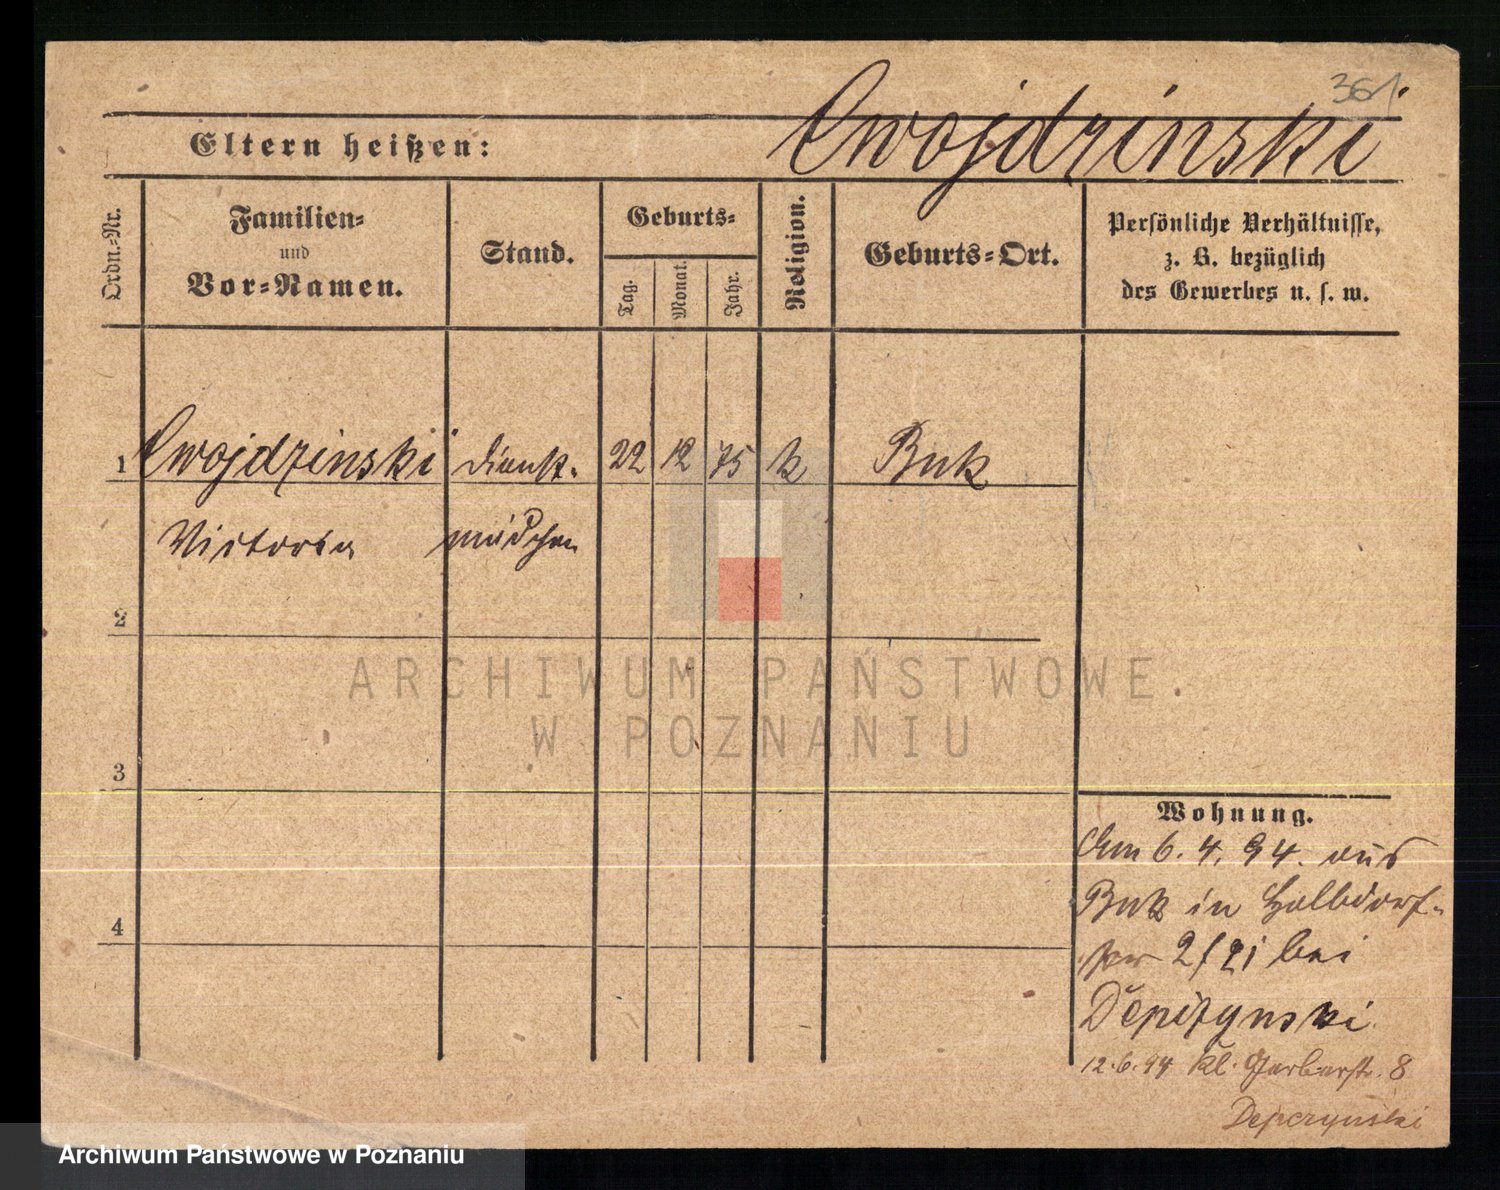 361
Cwojdzinski
Eltern heißen:
Ordn.-Nr.
Familien-
und
Vor-Namen.
Stand.
Geburts-
Tag.
Monat.
Jahr.
Religion.
Geburts-Ort.
Persönliche Verhältnisse,
z. B. bezüglich
des Gewerbes u. s. w.
1 Cwojdzinski Dienst- 22 12 75 k Buk
Victoria mädchen
2
3
4
ARCHIWUM PAŃSTWOWE
W POZNANIU
Wohnung.
Am 6. 4. 94. aus
Buk in Halbdorf-
str 2/21 bei
Depczynski
12.6.94 Kl. Gerberstr. 8
Depczynski
Archiwum Państwowe w Poznaniu